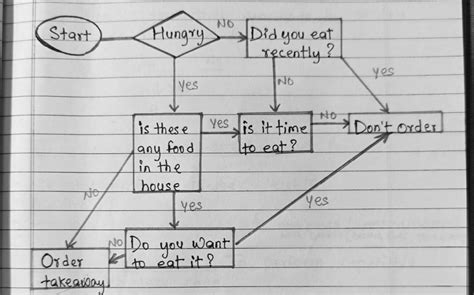 Start
Hungry
NO
Did you eat
recently?
yes
NO
yes
is these
any food
in the
house
yes
is it time
to eat?
NO
Don't order
NO
yes
yes
Do you want
to eat it?
NO
Order
takeaway